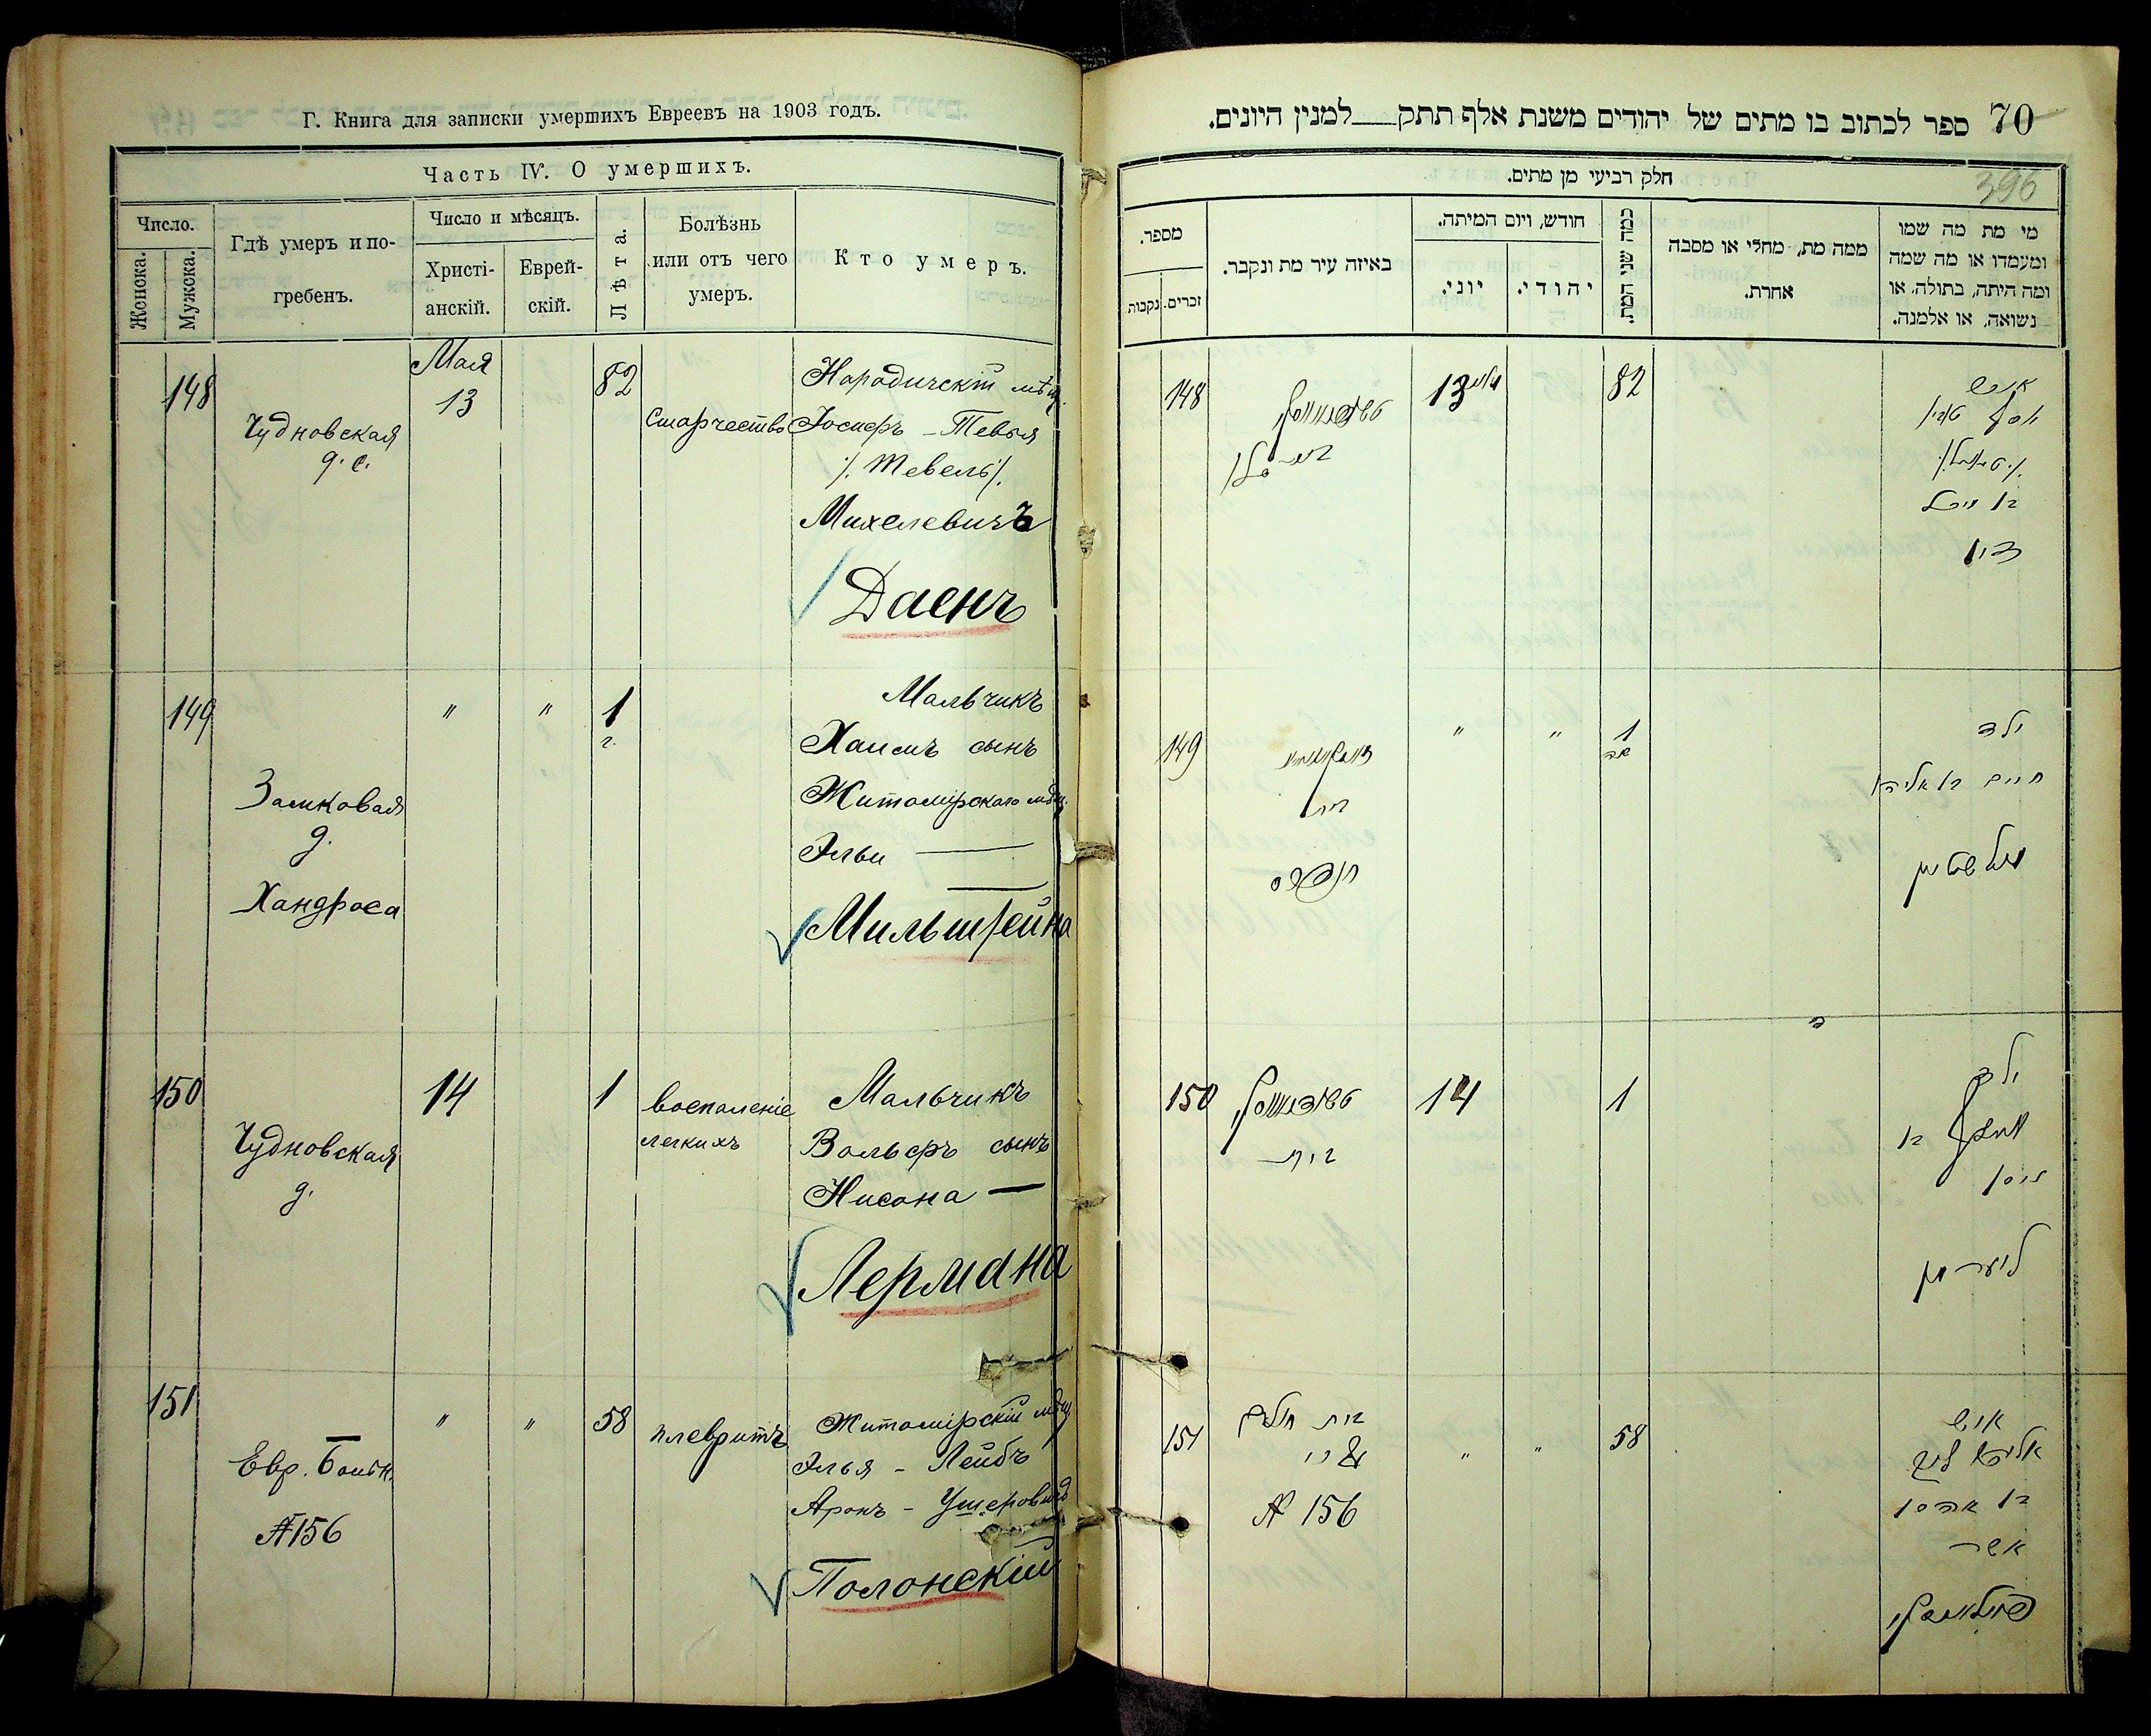 Г. Книга для записки умершихъ Евреевъ на 1903 годъ.
Часть IV. О умершихъ.
Число.
Женска.
Мужска.
Гдѣ умеръ и по-
гребенъ.
Число и мѣсяцъ.
Христі-
анскій.
Еврей-
скій.
Лѣта.
Болѣзнь
или отъ чего
умеръ.
Кто умеръ.
148
Чудновская
д. с.
Мая
13
82
Старчество
Народичскій мѣщ.
Іосифъ - Тевья
/. Тевель/.
Михелевичъ
Даенъ
149
Замковая
д.
Хандроса
" "
1
г.
Мальчикъ
Хаимъ сынъ
Житомірскаго мѣщ.
Эльи
Мильштейна
150
Чудновская
д.
14
1
воспаленіе
легкихъ
Мальчикъ
Вольфъ сынъ
Нисона
Лермана
151
Евр. Больн.
№156
" "
58
плевритъ
Житомірскій мѣщ
Элья - Лейбъ
Аронъ - Ушеровичъ
Полонскій
70
ספר לכתוב בו מתים של יהודים משנת אלף תתק___למנין היונים.
396
חלק רביעי מן מתים.
מספר.
נקבות
זכרים.
באיזה עיר מת ונקבר.
חודש, ויום המיתה.
יוני.
יהודי.
כמה שני המת.
ממה מת, מחלי או מסבה
אחרת.
מי מת מה שמו
ומעמדו או מה שמה
ומה היתה, בתולה, או
נשואה, או אלמנה.
148
13 מאי
82
איש
יוסף טביא
בן מיכל
דיין
149
בית
" "
1
שנה
ילד
חיים בן אליהו
מילשטיין
150
בית
14
1
ילד
וואלף בן
ניסן
לערמאן
151
בית חולים
№ 156
" "
58
איש
אליהו לייב
בן אהרן
אשר
פולאנסקי